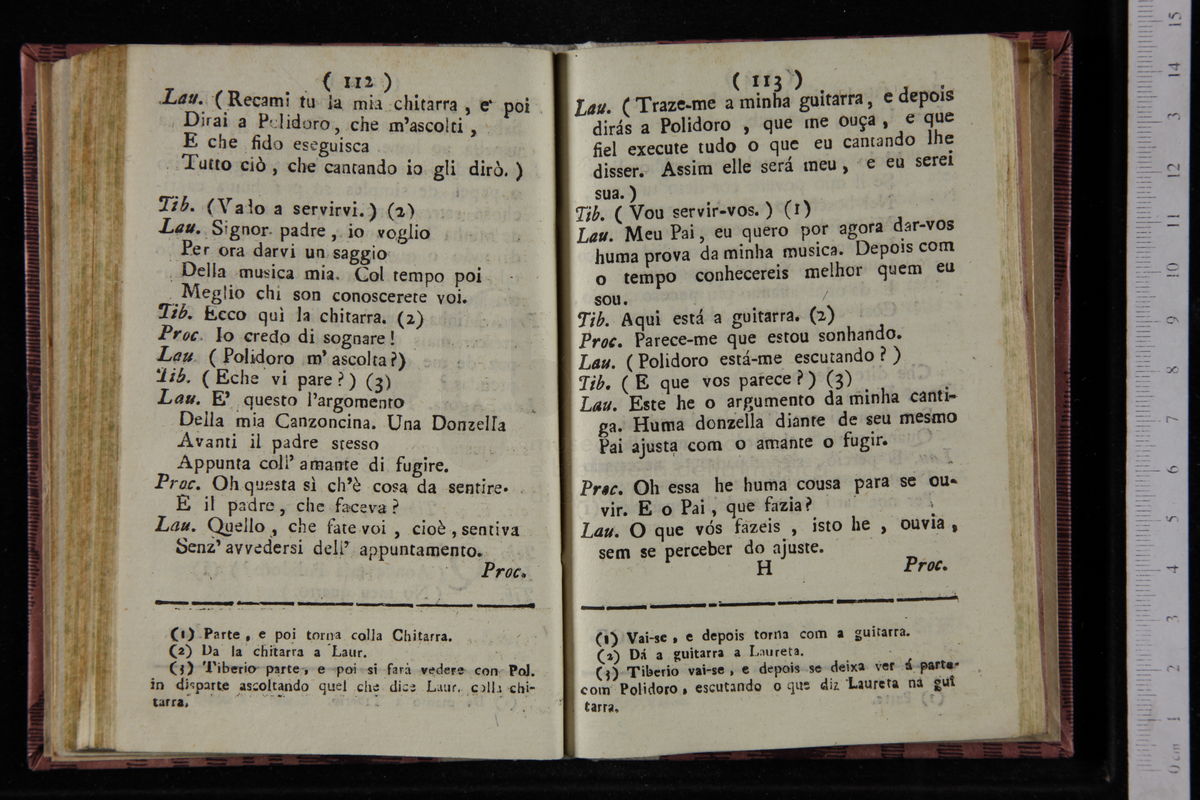 ( 112 )
Lau. (Recami tu la mia chitarra, e poi
Dirai a Polidoro, che m'ascolti,
E che fido eseguisca
Tutto ciò, che cantando io gli dirò.)
Tib. (Vado a servirvi.) (2)
Lau. Signor padre, io voglio
Per ora darvi un saggio
Della musica mia. Col tempo poi
Meglio chi son conoscerete voi.
Tib. Ecco quì la chitarra. (2)
Proc. Io credo di sognare!
Lau. (Polidoro m'ascolta?)
Tib. (Eche vi pare?) (3)
Lau. E' questo l'argomento
Della mia Canzoncina. Una Donzella
Avanti il padre stesso
Appunta coll' amante di fugire.
Proc. Oh questa sì ch'è cosa da sentire.
E il padre, che faceva?
Lau. Quello, che fate voi, cioè, sentiva
Senz' avvedersi dell' appuntamento.
Proc.
(1) Parte, e poi torna colla Chitarra.
(2) Da la chitarra a Laur.
(3) Tiberio parte, e poi si farà vedere con Pol.
in disparte ascoltando quel che dice Laur. colla chi-
tarra.
( 113 )
Lau. (Traze-me a minha guitarra, e depois
dirás a Polidoro, que me ouça, e que
fiel execute tudo o que eu cantando lhe
disser. Assim elle será meu, e eu serei
sua.)
Tib. (Vou servir-vos.) (1)
Lau. Meu Pai, eu quero por agora dar-vos
huma prova da minha musica. Depois com
o tempo conhecereis melhor quem eu
sou.
Tib. Aqui está a guitarra. (2)
Proc. Parece-me que estou sonhando.
Lau. (Polidoro está-me escutando?)
Tib. (E que vos parece?) (3)
Lau. Este he o argumento da minha canti-
ga. Huma donzella diante de seu mesmo
Pai ajusta com o amante o fugir.
Proc. Oh essa he huma cousa para se ou-
vir. E o Pai, que fazia?
Lau. O que vós fazeis, isto he, ouvia,
sem se perceber do ajuste.
H Proc.
(1) Vai-se, e depois torna com a guitarra.
(2) Dá a guitarra a Laureta.
(3) Tiberio vai-se, e depois se deixa ver á parte
com Polidoro, escutando o que diz Laureta na gui
tarra.
0 cm 1 2 3 4 5 6 7 8 9 10 11 12 13 14 15